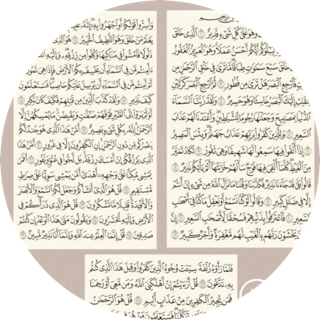 وَهُوَ عَلَىٰ كُلِّ شَىْءٍ قَدِيرٌ ١ ٱلَّذِى خَلَقَ
أَيُّكُمْ أَحْسَنُ عَمَلًا وَهُوَ ٱلْعَزِيزُ ٱلْغَفُورُ
خَلَقَ سَبْعَ سَمَٰوَٰتٍ طِبَاقًا مَّا تَرَىٰ فِى خَلْقِ ٱلرَّحْمَٰنِ مِن
فَٱرْجِعِ ٱلْبَصَرَ هَلْ تَرَىٰ مِن فُطُورٍ ٣ ثُمَّ ٱرْجِعِ ٱلْبَصَرَ كَرَّتَيْنِ
يَنقَلِبْ إِلَيْكَ ٱلْبَصَرُ خَاسِئًا وَهُوَ حَسِيرٌ ٤ وَلَقَدْ زَيَّنَّا ٱلسَّمَآءَ
ٱلدُّنْيَا بِمَصَٰبِيحَ وَجَعَلْنَٰهَا رُجُومًا لِّلشَّيَٰطِينِ وَأَعْتَدْنَا لَهُمْ عَذَابَ
ٱلسَّعِيرِ ٥ وَلِلَّذِينَ كَفَرُوا۟ بِرَبِّهِمْ عَذَابُ جَهَنَّمَ وَبِئْسَ ٱلْمَصِيرُ
إِذَآ أُلْقُوا۟ فِيهَا سَمِعُوا۟ لَهَا شَهِيقًا وَهِىَ تَفُورُ ٧ تَكَادُ تَمَيَّزُ
مِنَ ٱلْغَيْظِ كُلَّمَآ أُلْقِىَ فِيهَا فَوْجٌ سَأَلَهُمْ خَزَنَتُهَآ أَلَمْ يَأْتِكُمْ نَذِيرٌ
قَالُوا۟ بَلَىٰ قَدْ جَآءَنَا نَذِيرٌ فَكَذَّبْنَا وَقُلْنَا مَا نَزَّلَ ٱللَّهُ مِن شَىْءٍ إِنْ أَنتُمْ
إِلَّا فِى ضَلَٰلٍ كَبِيرٍ ٩ وَقَالُوا۟ لَوْ كُنَّا نَسْمَعُ أَوْ نَعْقِلُ مَا كُنَّا فِىٓ أَصْحَٰبِ
ٱلسَّعِيرِ ١٠ فَٱعْتَرَفُوا۟ بِذَنۢبِهِمْ فَسُحْقًا لِّأَصْحَٰبِ ٱلسَّعِيرِ ١١ إِنَّ
يَخْشَوْنَ رَبَّهُم بِٱلْغَيْبِ لَهُم مَّغْفِرَةٌ وَأَجْرٌ كَبِيرٌ
وَأَسِرُّوا۟ قَوْلَكُمْ أَوِ ٱجْهَرُوا۟ بِهِۦٓ إِنَّهُۥ
يَعْلَمُ مَنْ خَلَقَ وَهُوَ ٱللَّطِيفُ ٱلْخَبِيرُ ١٤ هُوَ
ذَلُولًا فَٱمْشُوا۟ فِى مَنَاكِبِهَا وَكُلُوا۟ مِن رِّزْقِهِۦ
ءَأَمِنتُم مَّن فِى ٱلسَّمَآءِ أَن يَخْسِفَ بِكُمُ ٱلْأَرْضَ فَإِذَا هِىَ تَمُورُ
أَمْ أَمِنتُم مَّن فِى ٱلسَّمَآءِ أَن يُرْسِلَ عَلَيْكُمْ حَاصِبًا فَسَتَعْلَمُونَ
كَيْفَ نَذِيرِ ١٧ وَلَقَدْ كَذَّبَ ٱلَّذِينَ مِن قَبْلِهِمْ فَكَيْفَ كَانَ نَكِيرِ
أَوَلَمْ يَرَوْا۟ إِلَى ٱلطَّيْرِ فَوْقَهُمْ صَٰٓفَّٰتٍ وَيَقْبِضْنَ مَا يُمْسِكُهُنَّ إِلَّا
ٱلرَّحْمَٰنُ إِنَّهُۥ بِكُلِّ شَىْءٍۭ بَصِيرٌ ١٩ أَمَّنْ هَٰذَا ٱلَّذِى هُوَ جُندٌ لَّكُمْ
يَنصُرُكُم مِّن دُونِ ٱلرَّحْمَٰنِ إِنِ ٱلْكَٰفِرُونَ إِلَّا فِى غُرُورٍ ٢٠ أَمَّنْ هَٰذَا
ٱلَّذِى يَرْزُقُكُمْ إِنْ أَمْسَكَ رِزْقَهُۥ بَل لَّجُّوا۟ فِى عُتُوٍّ وَنُفُورٍ ٢١ أَفَمَن
يَمْشِى مُكِبًّا عَلَىٰ وَجْهِهِۦٓ أَهْدَىٰٓ أَمَّن يَمْشِى سَوِيًّا عَلَىٰ صِرَٰطٍ
مُّسْتَقِيمٍ ٢٢ قُلْ هُوَ ٱلَّذِىٓ أَنشَأَكُمْ وَجَعَلَ لَكُمُ ٱلسَّمْعَ وَٱلْأَبْصَٰرَ
وَٱلْأَفْـِٔدَةَ قَلِيلًا مَّا تَشْكُرُونَ ٢٣ قُلْ هُوَ ٱلَّذِى ذَرَأَكُمْ فِى
ٱلْأَرْضِ وَإِلَيْهِ تُحْشَرُونَ ٢٤ وَيَقُولُونَ مَتَىٰ هَٰذَا ٱلْوَعْدُ إِن كُنتُمْ
صَٰدِقِينَ ٢٥ قُلْ إِنَّمَا ٱلْعِلْمُ عِندَ ٱللَّهِ وَإِنَّمَآ أَنَا۠ نَذِيرٌ مُّبِينٌ
فَلَمَّا رَأَوْهُ زُلْفَةً سِيٓـَٔتْ وُجُوهُ ٱلَّذِينَ كَفَرُوا۟ وَقِيلَ هَٰذَا ٱلَّذِى كُنتُم
بِهِۦ تَدَّعُونَ ٢٧ قُلْ أَرَءَيْتُمْ إِنْ أَهْلَكَنِىَ ٱللَّهُ وَمَن مَّعِىَ أَوْ رَحِمَنَا
فَمَن يُجِيرُ ٱلْكَٰفِرِينَ مِنْ عَذَابٍ أَلِيمٍ ٢٨ قُلْ هُوَ ٱلرَّحْمَٰنُ